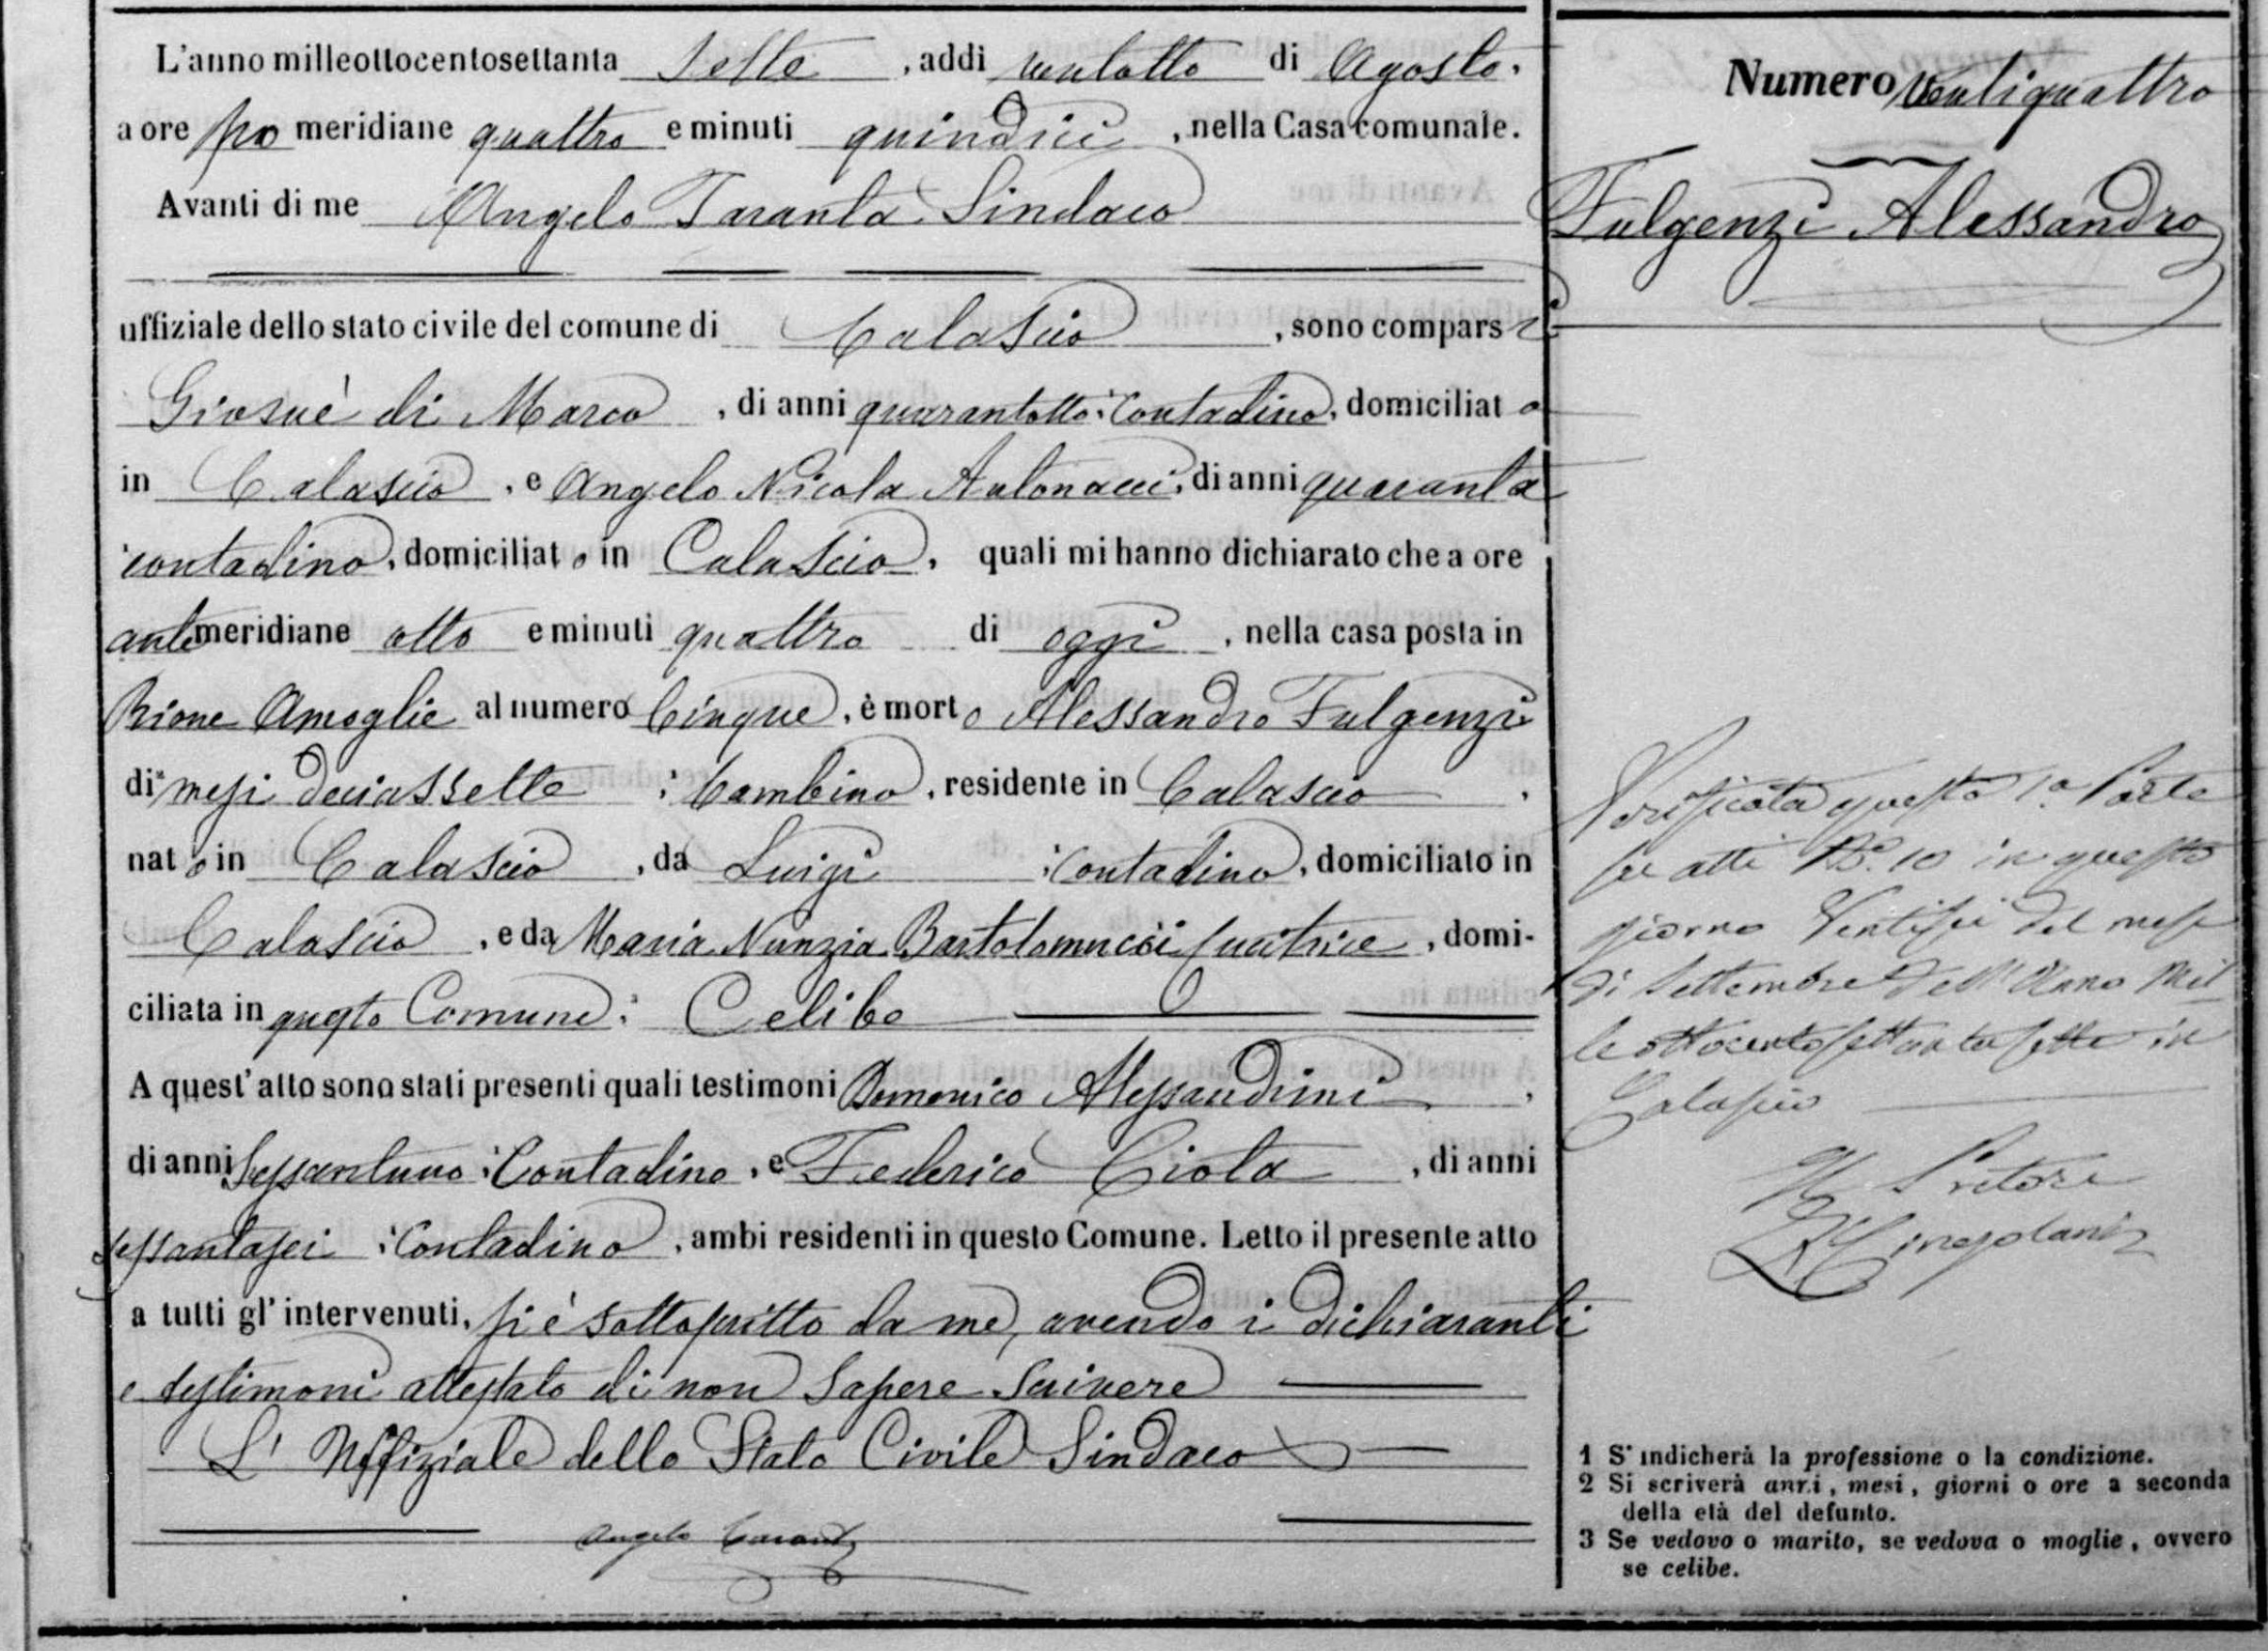 L'anno milleottocentosettanta Sette, addi ventotto di Agosto,
a ore po meridiane quattro e minuti quindici, nella Casa comunale.
Avanti di me Angelo Taranta Sindaco
uffiziale dello stato civile del comune di Calascio, sono comparsi
Giosuè di Marco, di anni quarantotto, Contadino, domiciliato
in Calascio, e Angelo Nicola Antonacci, di anni quaranta
contadino, domiciliato in Calascio, quali mi hanno dichiarato che a ore
antemeridiane otto e minuti quattro di oggi, nella casa posta in
Rione Amoglie al numero Cinque, è morto Alessandro Fulgenzi
di mesi deciassette, bambino, residente in Calascio,
nato in Calascio, da Luigi, Contadino, domiciliato in
Calascio, e da Maria Nunzia Bartolomucci cucitrice, domi-
ciliata in questo Comune: Celibe
A quest'atto sono stati presenti quali testimoni Domenico Alessandrini,
di anni Sessantuno, Contadino, e Federico Ciota, di anni
sessantasei, Contadino, ambi residenti in questo Comune. Letto il presente atto
a tutti gl'intervenuti, si è sottoscritto da me, avendo i dichiaranti
e testimoni attestato di non sapere scrivere
L'Uffiziale dello Stato Civile Sindaco
Angelo Taranta
Numero Ventiquattro
Fulgenzi Alessandro
Verificata questa 1a Parte
su atti No. 10 in questo
giorno Ventisei del mese
di Settembre dell'Anno Mil
le ottocento settanta sette in
Calascio
Il Pretore
1 S'indicherà la professione o la condizione.
2 Si scriverà anni, mesi, giorni o ore a seconda
della età del defunto.
3 Se vedovo o marito, se vedova o moglie, ovvero
se celibe.